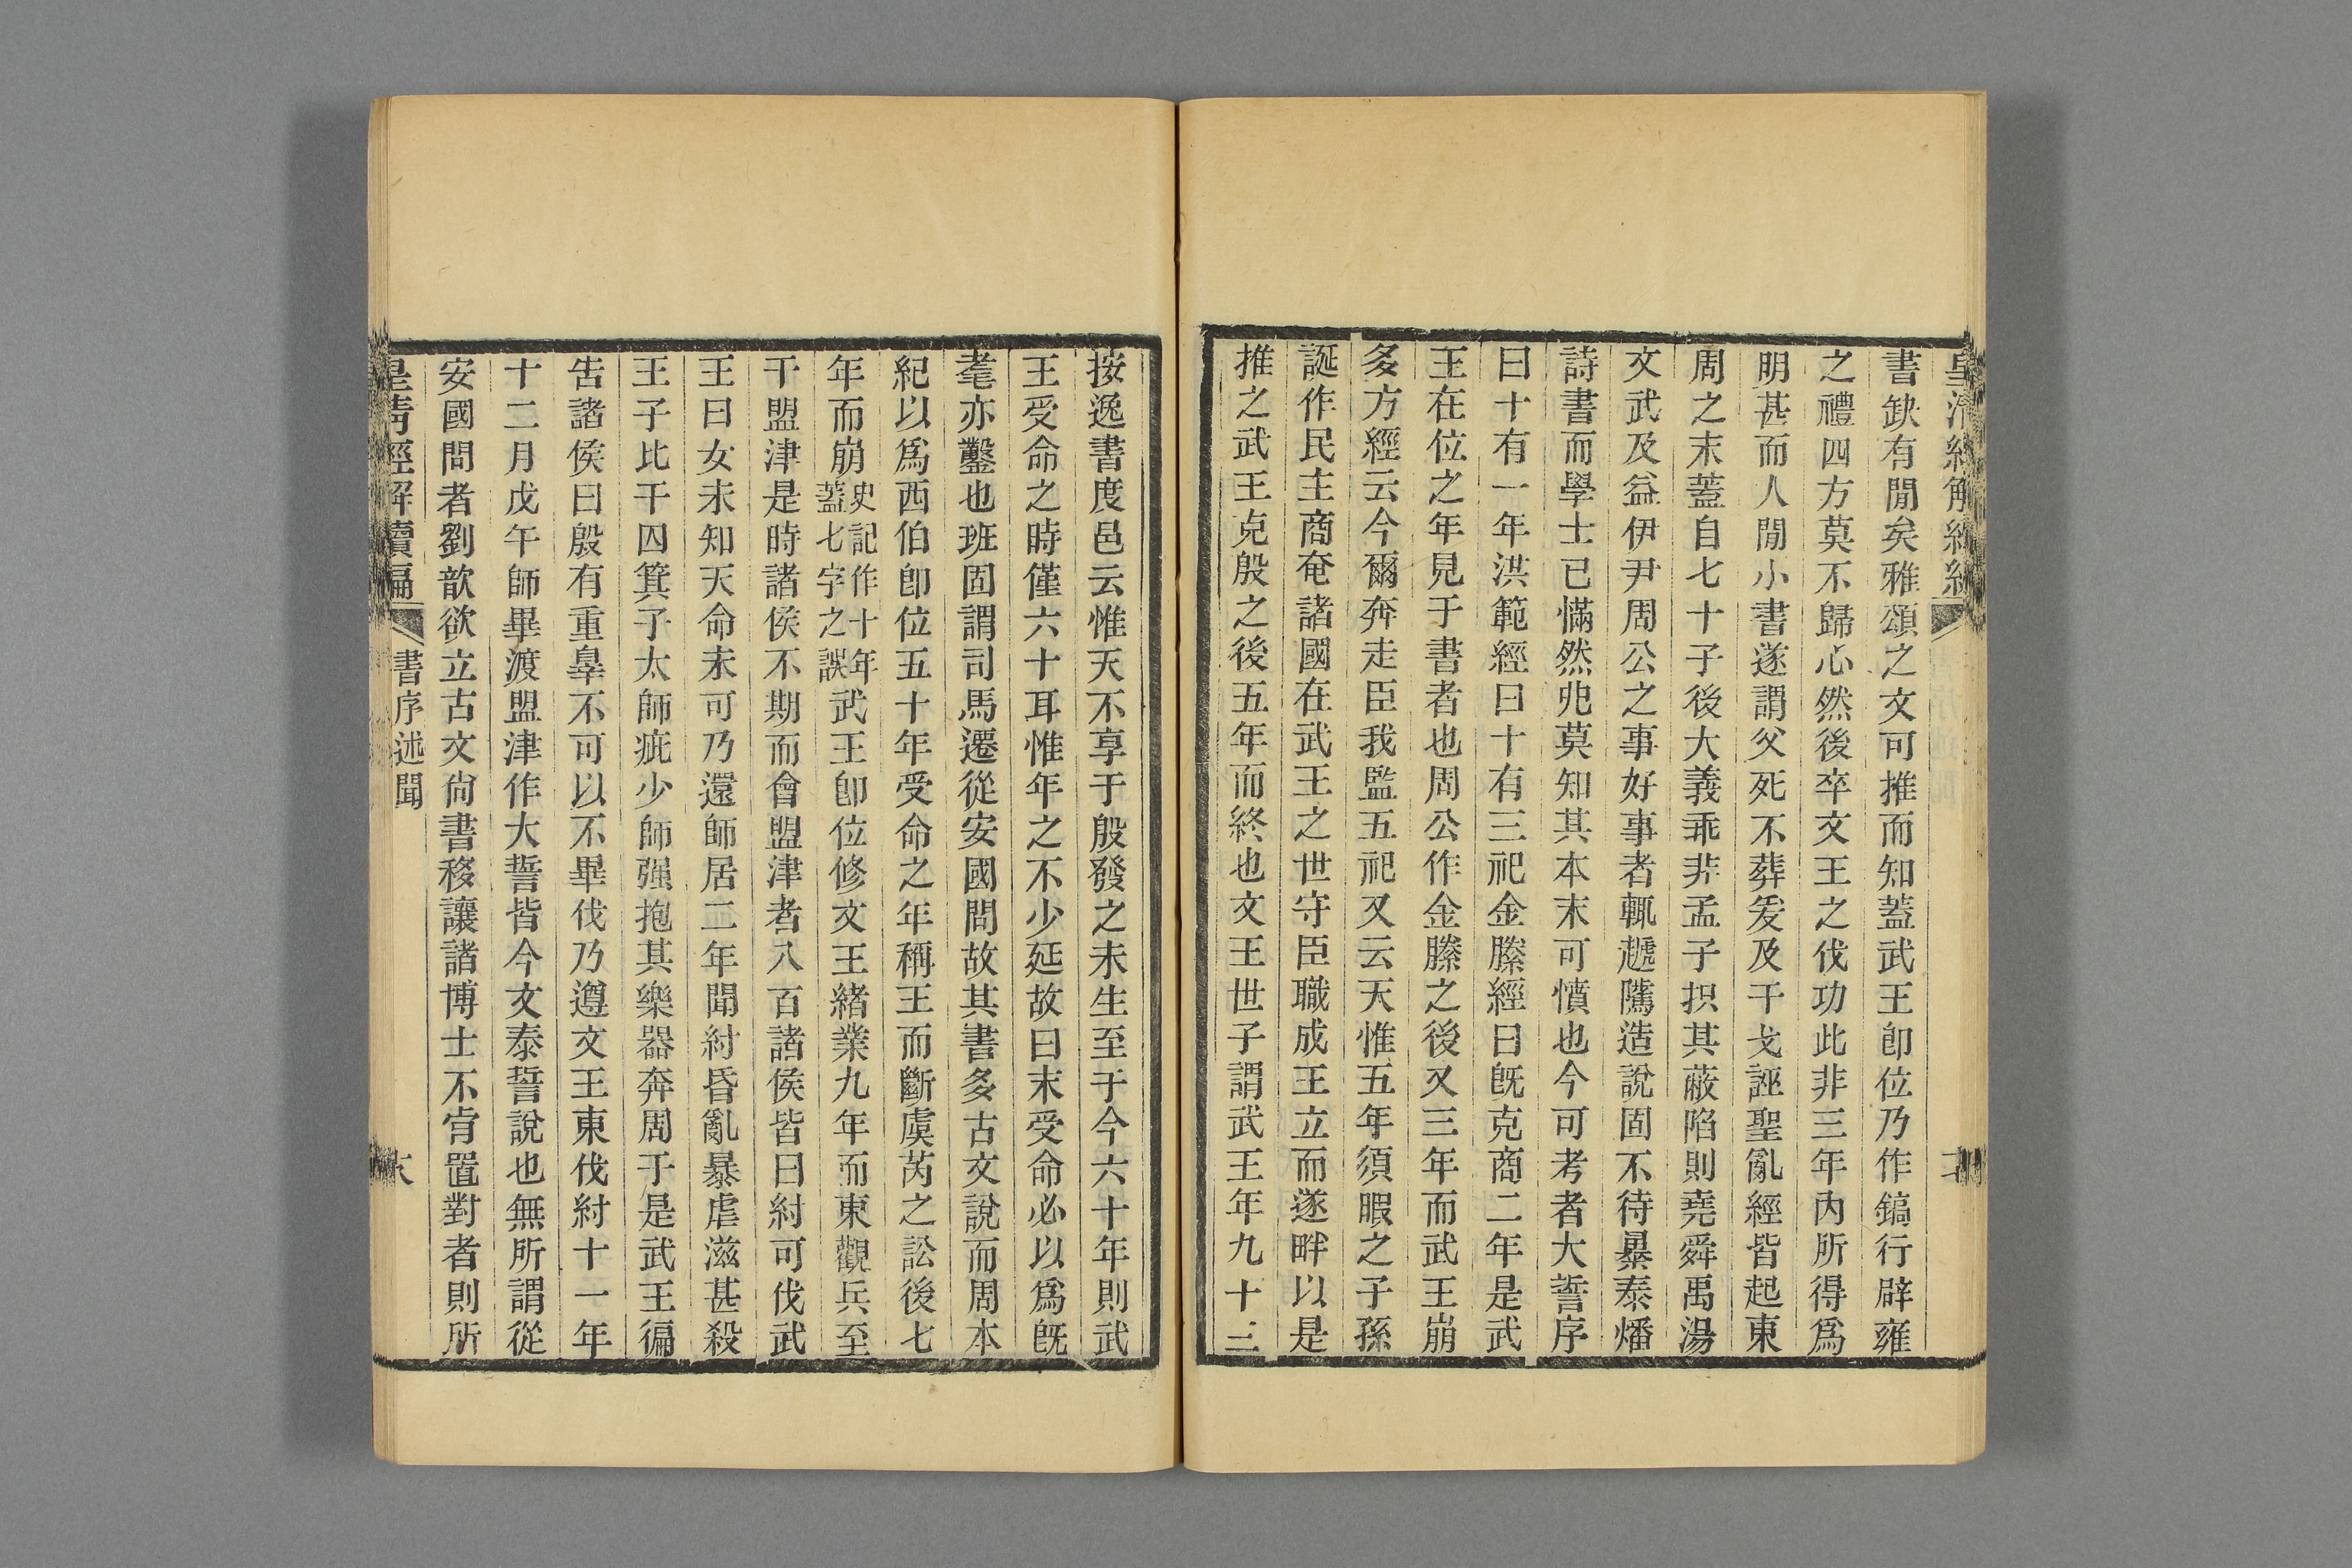 書缺有閒矣雅頌之文可推而知蓋武王卽位乃作鎬行辟雍
之禮四方莫不歸心然後卒文王之伐功此非三年內所得爲
明甚而人閒小書遂謂父死不葬爰及干戈誣聖亂經皆起東
周之末蓋自七十子後大義乖非孟子抧其蔽陷則堯舜禹湯
文武及益伊尹周公之事好事者輒趨隲造說固不待暴秦燔
詩書而學士已懣然兠莫知其本末可憤也今可考者大誓序
曰十有一年洪範經曰十有三祀金縢經曰旣克商二年是武
王在位之年見于書者也周公作金縢之後又三年而武王崩
多方經云今爾奔走臣我監五祀又云天惟五年須暇之子孫
誕作民主商奄諸國在武王之世守臣職成王立而遂畔以是
推之武王克殷之後五年而終也文王世子謂武王年九十三
按逸書度邑云惟天不享于殷發之未生至于今六十年則武
王受命之時僅六十耳惟年之不少延故曰末受命必以爲旣
耄亦鑿也班固謂司馬遷從安國問故其書多古文說而周本
紀以爲西伯卽位五十年受命之年稱王而斷虞芮之訟後七
年而崩史記作十年蓋七字之誤武王卽位修文王緒業九年而東觀兵至
于盟津是時諸侯不期而會盟津者八百諸侯皆曰紂可伐武
王曰女未知天命未可乃還師居二年聞紂昏亂暴虐滋甚殺
王子比干囚箕子太師疵少師强抱其樂器奔周于是武王徧
告諸侯曰殷有重辠不可以不畢伐乃遵文王東伐紂十一年
十二月戊午師畢渡盟津作大誓皆今文泰誓說也無所謂從
安國問者劉歆欲立古文尙書移讓諸博士不肯置對者則所
皇清經解續編 書序述聞